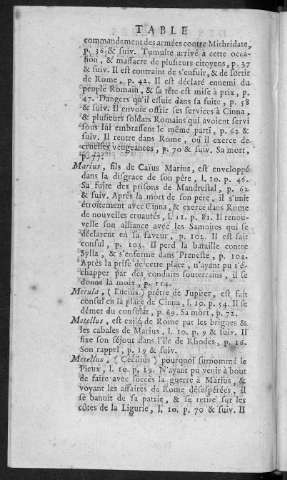 TABLE
commandement des armées contre Mithridate,
p. 36 & suiv. Tumulte arrivé à cette occa-
sion, & massacre de plusieurs citoyens, p. 37
& suiv. Il est contraint de s'enfuir, & de sortir
de Rome, p. 42. Il est déclaré ennemi du
peuple Romain, & sa tête est mise à prix, p.
47. Dangers qu'il essuie dans sa fuite, p. 58
& suiv. Il envoie offrir ses services à Cinna,
& plusieurs soldats Romains qui avoient servi
sous lui embrassent le même parti, p. 62 &
suiv. Il rentre dans Rome, où il exerce de
cruelles vengeances, p. 70 & suiv. Sa mort,
p. 77.
Marius, fils de Caïus Marius, est enveloppé
dans la disgrace de son pére, l. 10. p. 46.
Sa fuite des prisons de Mandrestal, p. 62
& suiv. Après la mort de son pére, il s'unit
étroitement avec Cinna, & exerce dans Rome
de nouvelles cruautés, l. 11. p. 81. Il renou-
velle son alliance avec les Samnites qui se
déclarent en sa faveur, p. 102. Il est fait
consul, p. 103. Il perd la bataille contre
Sylla, & s'enferme dans Preneste, p. 104.
Après la prise de cette place, n'ayant pu s'é-
chapper par des conduits souterrains, il se
donne la mort, p. 114.
Merula, (Lucius) prêtre de Jupiter, est fait
consul en la place de Cinna, l. 10. p. 54. Il se
démet du consulat, p. 69. Sa mort, p. 72.
Metellus, est exilé de Rome par les brigues &
les cabales de Marius, l. 10. p. 9 & suiv. Il
fixe son séjour dans l'île de Rhodes, p. 16.
Son rappel, p. 19 & suiv.
Metellus, (Cecilius) pourquoi surnommé le
Pieux, l. 10. p. 19. N'ayant pu venir à bout
de faire avec succès la guerre à Marius, &
voyant les affaires de Rome désespérées, il
se bannit de sa patrie, & se retire sur les
côtes de la Ligurie, l. 10. p. 70 & suiv. Il